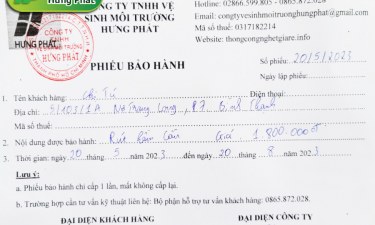 Hưng Phát
CÔNG TY TNHH VỆ
SINH MÔI TRƯỜNG
HƯNG PHÁT
Hotline: 02866.599.805 - 0865.872.028
Email: congtyvesinhmoitruonghungphat@gmail.com
Mã số thuế: 0317182214
Website: thongcongnghetgiare.info
CÔNG TY
TNHH
HƯNG PHÁT
PHIẾU BẢO HÀNH
Số phiếu: 20/5/2023
Ngày lập phiếu:
1. Tên khách hàng: Chị Tú Điện thoại:
Địa chỉ: 5/103/1A Nơ Trang Long, P.7 Bình Thạnh
Mã số thuế:
2. Nội dung được bảo hành: Rút hầm Cầu Giá 1.800.000đ
3. Thời gian: ngày 20 tháng 5 năm 2023 đến ngày 20 tháng 8 năm 2023
Lưu ý:
a. Phiếu bảo hành chỉ cấp 1 lần, mất không cấp lại.
b. Trường hợp cần tư vấn kỹ thuật liên hệ: Bộ phận hỗ trợ tư vấn khách hàng: 0865.872.028.
ĐẠI DIỆN KHÁCH HÀNG ĐẠI DIỆN CÔNG TY